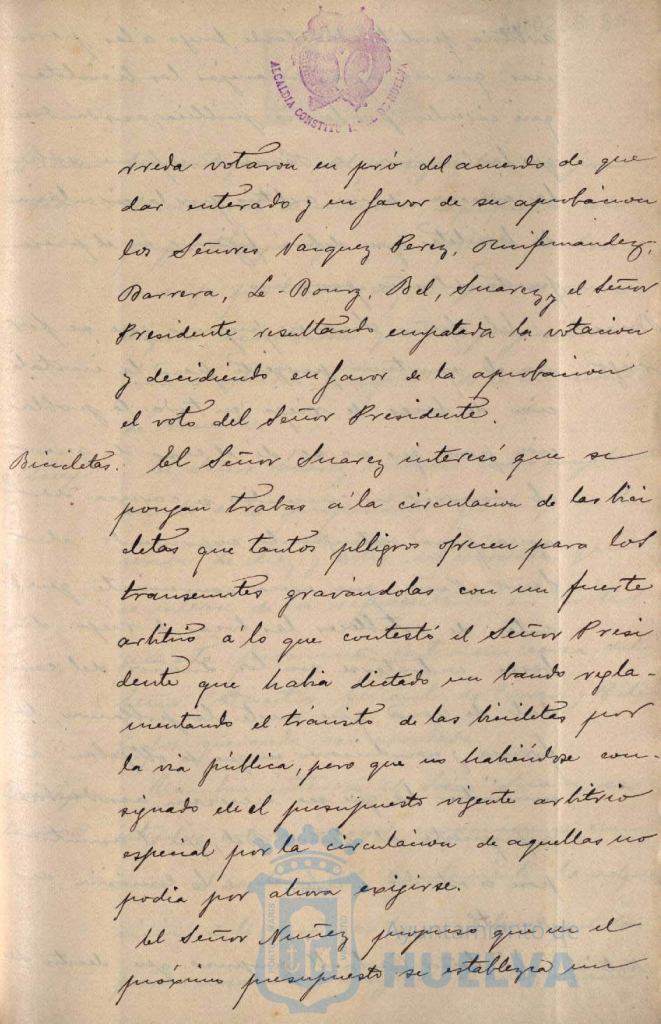 ALCALDIA CONSTITU   L DE HUELVA
rreda votaron en pró del acuerdo de que
dar enterado y en favor de su aprobacion
los Señores Vazquez Perez, Ruifernandez,
Barrera, Le-Bourg, Bel, Suarez, y el Señor
Presidente resultando empatada la votacion
y decidiendo en favor de la aprobacion
el voto del Señor Presidente.
Bicicletas. El Señor Suarez interesó que se
pongan trabas á la circulacion de las bici
cletas que tantos pelligros ofrecen para los
transeuntes gravándolas con un fuerte
arbitrio á lo que contestó el Señor Presi
dente que habia dictado un bando regla-
mentando el tránsito de las bicicletas por
la via pública, pero que no habiéndose con-
signado en el presupuesto vigente arbitrio
especial por la circulacion de aquellas no
podia por ahora exigirse.
El Señor Nuñez propuso que en el
próximo presupuesto se establezca un
Ayuntamiento de
HUELVA